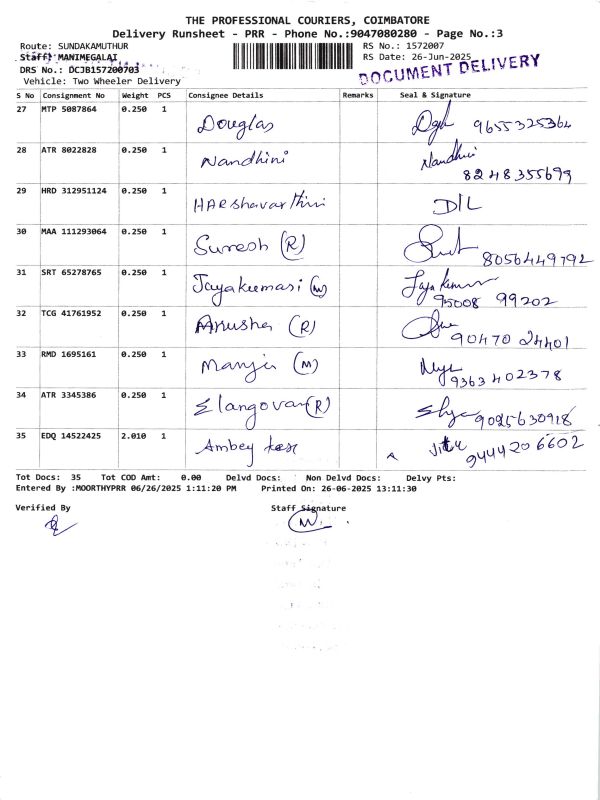 THE PROFESSIONAL COURIERS, COIMBATORE
Delivery Runsheet - PRR - Phone No.:9047080280 - Page No.:3
Route: SUNDAKAMUTHUR RS No.: 1572007
Staff: MANIMEGALAI RS Date: 26-Jun-2025
DRS No.: DCJB157200703
DOCUMENT DELIVERY
Vehicle: Two Wheeler Delivery
S No Consignment No Weight PCS Consignee Details Remarks Seal & Signature
27 MTP 5087864 0.250 1 Douglas 9655325364
28 ATR 8022828 0.250 1 Nandhini Nandhini
8248355699
29 HRD 312951124 0.250 1 HARshavarthini D/L
30 MAA 111293064 0.250 1 Suresh (R) 8056449792
31 SRT 65278765 0.250 1 Jayakumari (M) Jayakumar
95008 99202
32 TCG 41761952 0.250 1 Anusha (R)
90470 24401
33 RMD 1695161 0.250 1 Manju (M)
9363402378
34 ATR 3345386 0.250 1 Elangovan (R) 9025630918
35 EDQ 14522425 2.010 1 Ambey 9444206602
Tot Docs: 35 Tot COD Amt: 0.00 Delvd Docs: Non Delvd Docs: Delvy Pts:
Entered By :MOORTHYPRR 06/26/2025 1:11:20 PM Printed On: 26-06-2025 13:11:30
Verified By Staff Signature
M.